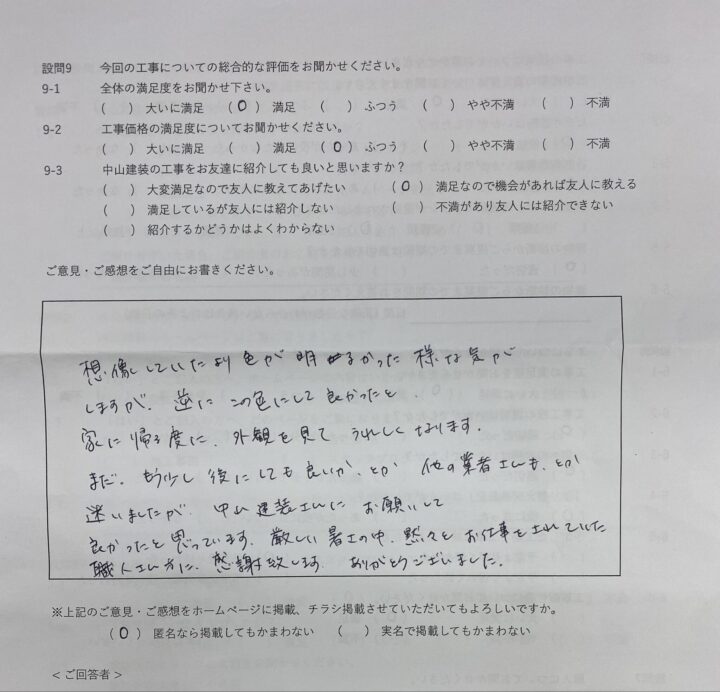 設問9 今回の工事についての総合的な評価をお聞かせください。
9-1 全体の満足度をお聞かせ下さい。
( ) 大いに満足 ( O ) 満足 ( ) ふつう ( ) やや不満 ( ) 不満
9-2 工事価格の満足度についてお聞かせください。
( ) 大いに満足 ( ) 満足 ( O ) ふつう ( ) やや不満 ( ) 不満
9-3 中山建装の工事をお友達に紹介しても良いと思いますか？
( ) 大変満足なので友人に教えてあげたい ( O ) 満足なので機会があれば友人に教える
( ) 満足しているが友人には紹介しない ( ) 不満があり友人には紹介できない
( ) 紹介するかどうかはよくわからない
ご意見・ご感想をご自由にお書きください。
想像していたより色が明るかった様な気が
しますが、逆にこの色にして良かったと、
家に帰る度に、外観を見てうれしくなります。
まだ、もう少し後にしても良いか、とか 他の業者さんも、とか
迷いましたが、中山建装さんにお願いして
良かったと思っています。厳しい暑さの中、黙々とお仕事をされていた
職人さん方に、感謝致します。ありがとうございました。
※上記のご意見・ご感想をホームページに掲載、チラシ掲載させていただいてもよろしいですか。
( O ) 匿名なら掲載してもかまわない ( ) 実名で掲載してもかまわない
＜ご回答者＞